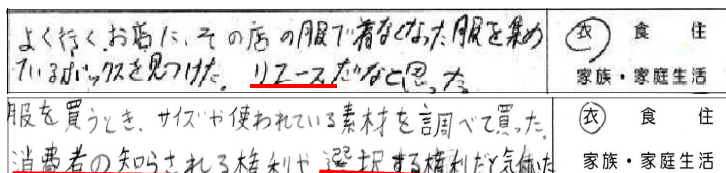 よく行くお店に、その店の服で着なくなった服を集め 衣 食 住
ているボックスを見つけた。リユースだなと思った。 家族・家庭生活
服を買うとき、サイズや使われている素材を調べて買った。 衣 食 住
消費者の知らされる権利や選択する権利だと気付いた 家族・家庭生活